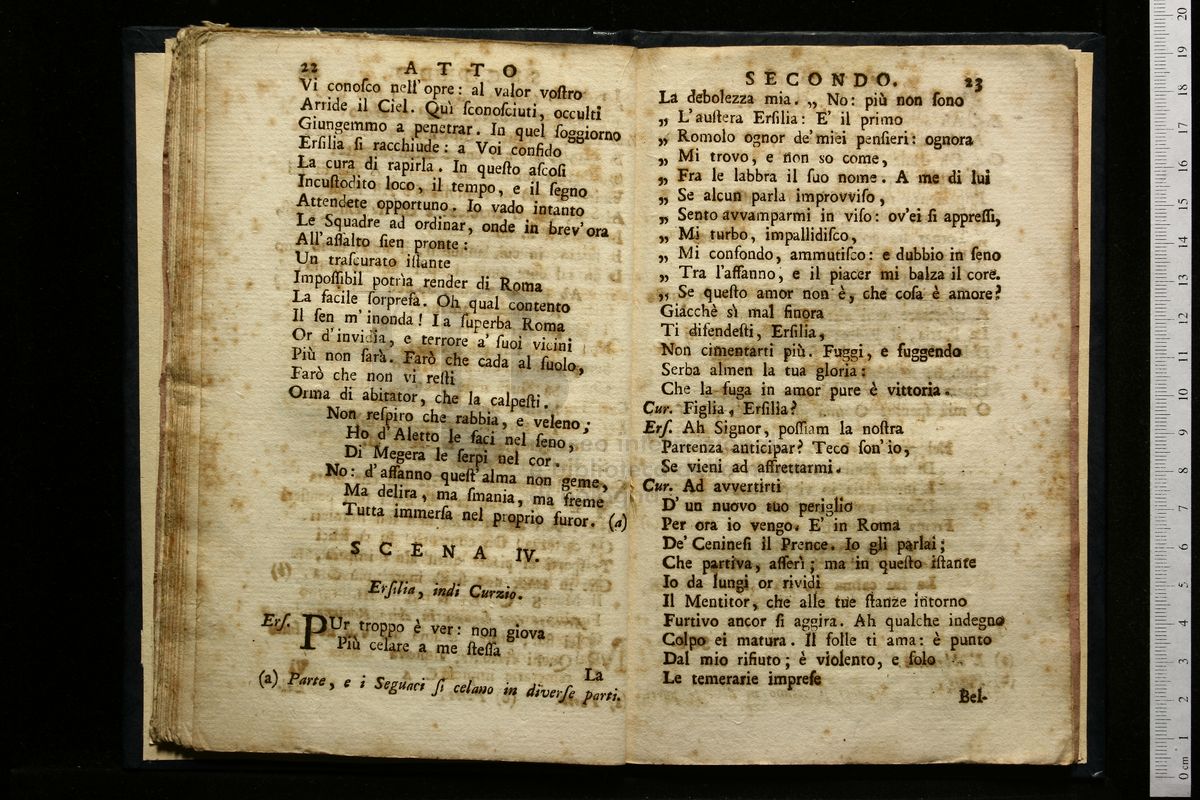 22 ATTO
Vi conoſco nell'opre: al valor voſtro
Arride il Ciel. Quì ſconoſciuti, occulti
Giungemmo a penetrar. In quel ſoggiorno
Erſilia ſi racchiude: a Voi confido
La cura di rapirla. In queſto aſcoſi
Incuſtodito loco, il tempo, e il ſegno
Attendete opportuno. Io vado intanto
Le Squadre ad ordinar, onde in brev'ora
All'aſſalto ſien pronte:
Un traſcurato iſtante
Impoſſibil potrìa render di Roma
La facile ſorpreſa. Oh qual contento
Il ſen m'inonda! La ſuperba Roma
Or d'invidia, e terrore a' ſuoi vicini
Più non ſarà. Farò che cada al ſuolo,
Farò che non vi reſti
Orma di abitator, che la calpeſti.
Non reſpiro che rabbia, e veleno;
Ho d'Aletto le faci nel ſeno,
Di Megera le ſerpi nel cor.
No: d'affanno queſt'alma non geme,
Ma delira, ma ſmania, ma freme
Tutta immerſa nel proprio furor. (a)
SCENA IV.
Erſilia, indi Curzio.
Erſ. PUr troppo è ver: non giova
Più celare a me ſteſſa
La
(a) Parte, e i Seguaci ſi celano in diverſe parti.
SECONDO. 23
La debolezza mia. „ No: più non ſono
„ L'auſtera Erſilia: E' il primo
„ Romolo ognor de' miei penſieri: ognora
„ Mi trovo, e non so come,
„ Fra le labbra il ſuo nome. A me di lui
„ Se alcun parla improvviſo,
„ Sento avvamparmi in viſo: ov'ei ſi appreſſi,
„ Mi turbo, impallidiſco,
„ Mi confondo, ammutiſco: e dubbio in ſeno
„ Tra l'affanno, e il piacer mi balza il core.
„ Se queſto amor non è, che coſa è amore?
Giacchè sì mal finora
Ti difendeſti, Erſilia,
Non cimentarti più. Fuggi, e fuggendo
Serba almen la tua gloria:
Che la fuga in amor pure è vittoria.
Cur. Figlia, Erſilia?
Erſ. Ah Signor, poſſiam la noſtra
Partenza anticipar? Teco ſon'io,
Se vieni ad affrettarmi.
Cur. Ad avvertirti
D'un nuovo tuo periglio
Per ora io vengo. E' in Roma
De' Ceninesi il Prence. Io gli parlai;
Che partiva, aſſerì; ma in queſto iſtante
Io da lungi or rividi
Il Mentitor, che alle tue ſtanze intorno
Furtivo ancor ſi aggira. Ah qualche indegno
Colpo ei matura. Il folle ti ama: è punto
Dal mio rifiuto; è violento, e ſolo
Le temerarie impreſe
Bel-